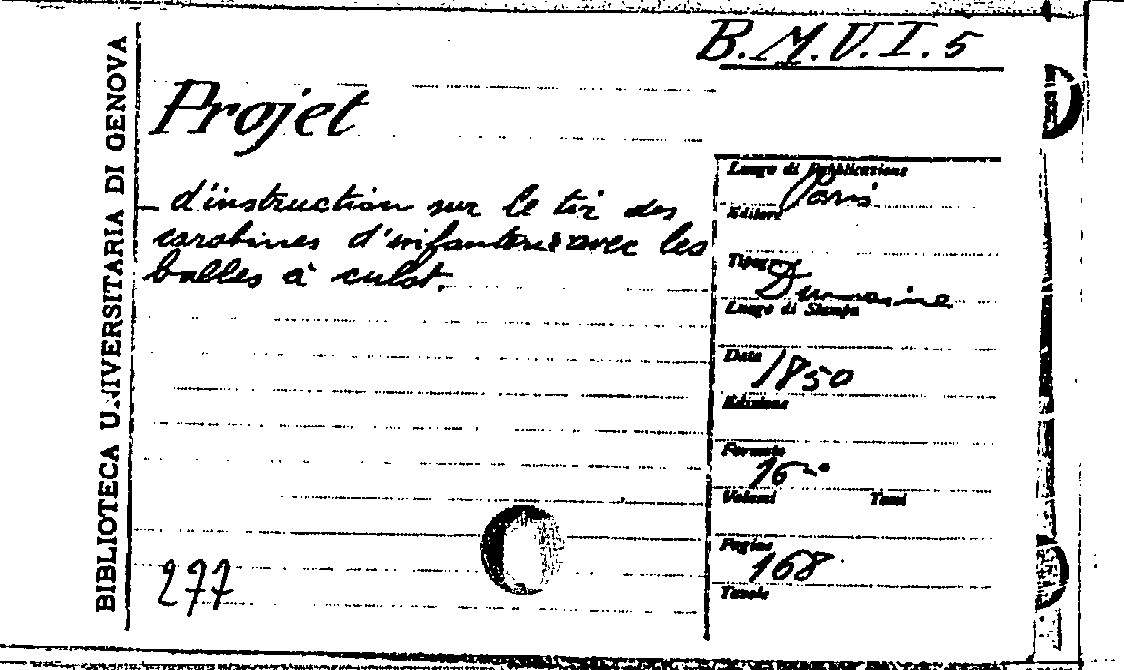 BIBLIOTECA UNIVERSITARIA DI GENOVA
B.M.V.I.5
Projet
d'instruction sur le tir des
carabines d'infanterie avec les
balles à culot.
277
Luogo di Pubblicazione
Paris
Editore
Tipog
Dumaine
Luogo di Stampa
Data
1850
Edizione
Formato
16°
Volumi Tomi
Pagine
168
Tavole